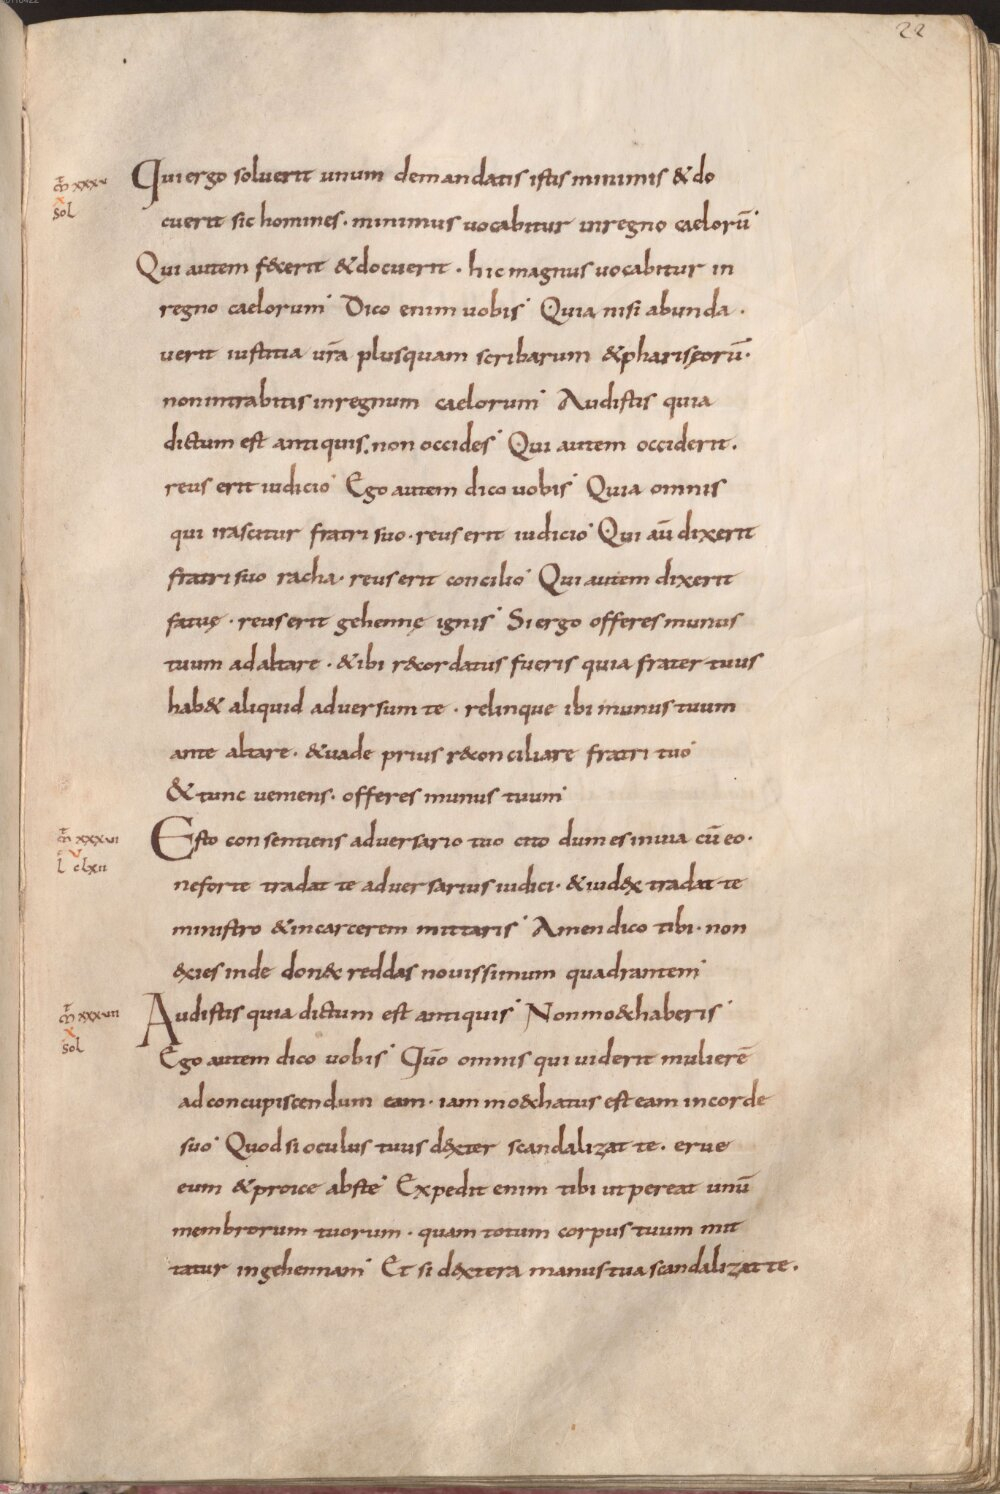 22
m̄ xxxv
x
sol
Qui ergo soluerit unum demandatis istis minimis & do
cuerit sic homines · minimus uocabitur inregno caelorū
Qui autem f&cerit &docuerit · hic magnus uocabitur in
regno caelorum Dico enim uobis Quia nisi abunda ·
uerit iustitia ur̄a plusquam scribarum &pharisęorū ·
nonintrabitis inregnum caelorum Audistis quia
dictum est antiquis . non occides Qui autem occiderit .
reus erit iudicio Ego autem dico uobis Quia omnis
qui irascitur fratri suo · reus erit iudicio Qui aū dixerit
fratri suo racha · reus erit concilio Qui autem dixerit
fatuę · reus erit gehennę ignis Si ergo offeres munus
tuum ad altare · &ibi r&cordatus fueris quia frater tuus
hab& aliquid aduersum te · relinque ibi munus tuum
ante altare · &uade prius r&conciliare fratri tuo
& tunc ueniens · offeres munus tuum
m̄ xxxvi
v
l clxii
Esto consentiens aduersario tuo cito dum es inuia cū eo ·
neforte tradat te aduersarius iudici · &iud&x tradat te
ministro &incarcerem mittaris Amen dico tibi · non
&xies inde don&c reddas nouissimum quadrantem
m̄ xxxvii
x
sol
Audistis quia dictum est antiquis Nonmo&chaberis
Ego autem dico uobis Qūo omnis qui uiderit mulierē
ad concupiscendum eam · iam mo&chatus est eam incorde
suo Quod si oculus tuus d&xter scandalizat te · erue
eum &proice abste Expedit enim tibi ut pereat unū
membrorum tuorum · quam totum corpus tuum mit
tatur ingehennam Et si d&xtera manus tua scandalizat te ·